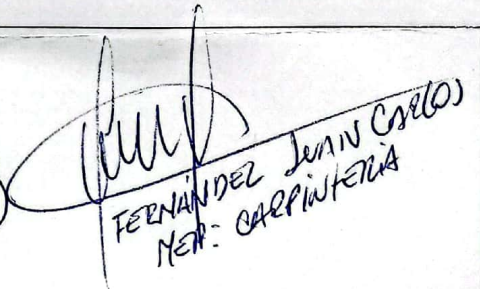 FERNÁNDEZ JUAN CARLOS
MEP: CARPINTERIA